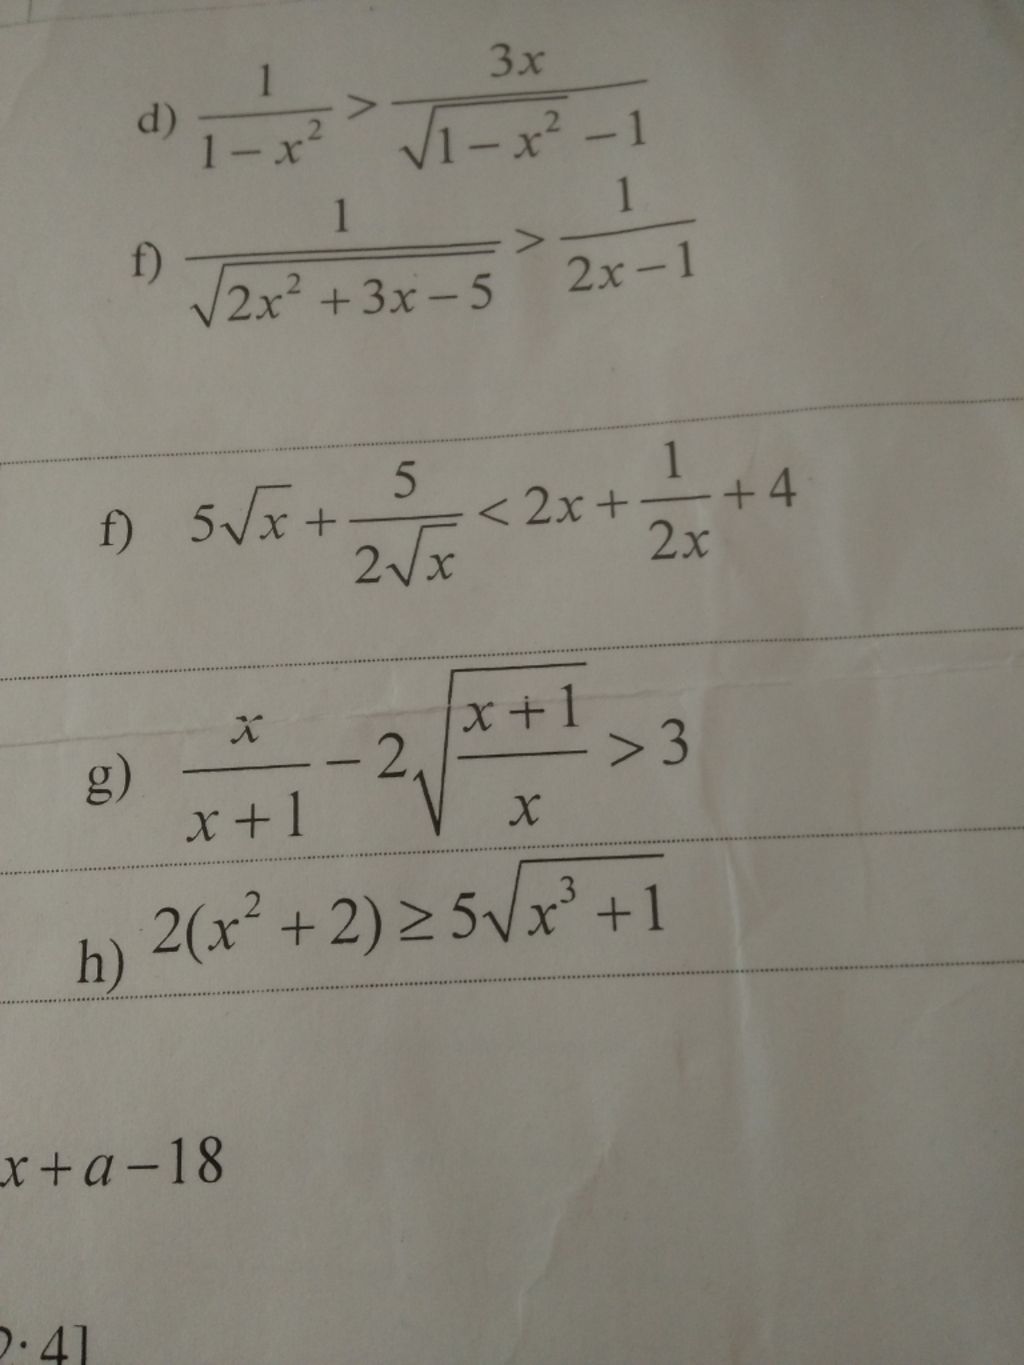 d) \frac{1}{1-x^2} > \frac{3x}{\sqrt{1-x^2}-1}
f) \frac{1}{\sqrt{2x^2+3x-5}} > \frac{1}{2x-1}
f) 5\sqrt{x} + \frac{5}{2\sqrt{x}} < 2x + \frac{1}{2x} + 4
g) \frac{x}{x+1} - 2\sqrt{\frac{x+1}{x}} > 3
h) 2(x^2+2) ≥ 5\sqrt{x^3+1}
x+a-18
4]